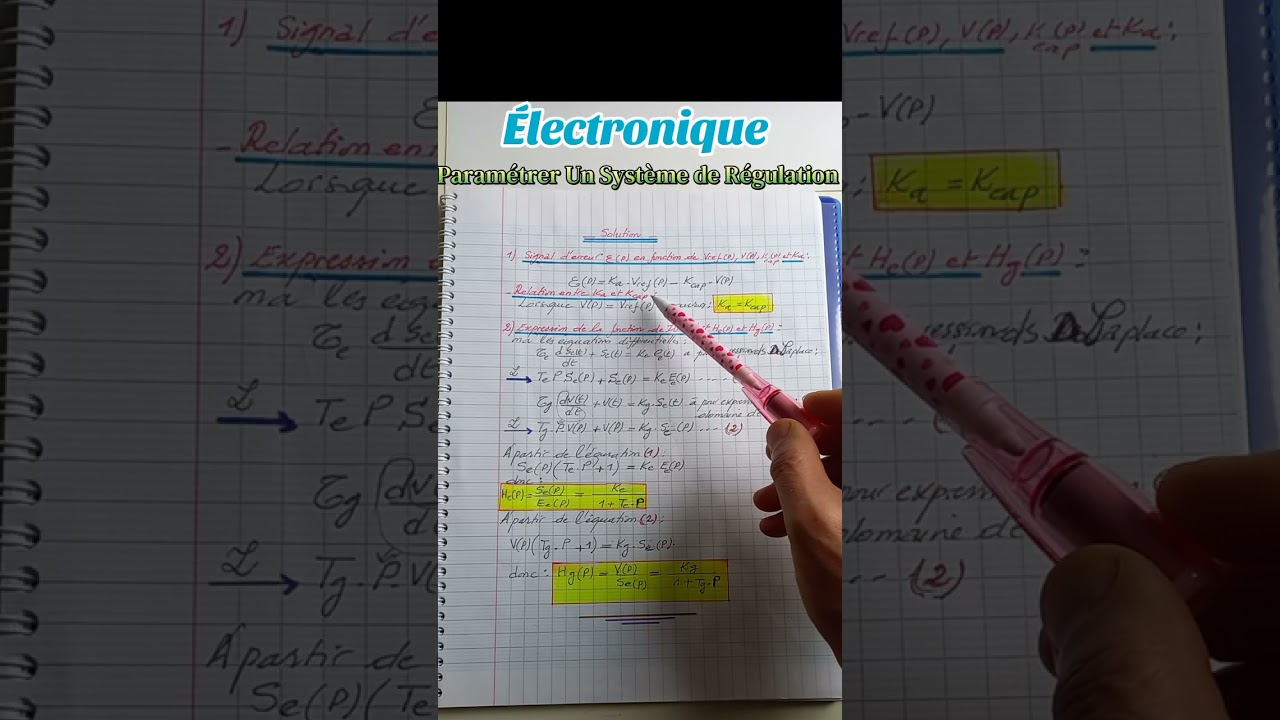 Électronique
Paramétrer Un Système de Régulation
Solution
1) Signal d'erreur ε(P) en fonction de Vref(P), V(P), Kcap(P) et Ka:
Ɛ(P) = Ka.Vref(P) - Kcap-V(P)
- Relation entre Ka et Kcap
Lorsque V(P) = Vref(P) Ka = Kcap
2) Expression de la fonction de He(P) et Hg(P):
les équations différentielles:
τe dSe(t)/dt + Se(t) = Ke Ee(t) Laplace;
L → Te P Se(P) + Se(P) = Ke Ee(P) ----
τg dv(t)/dt + v(t) = Kg.Se(t) a pour
domaine de
L → Tg.P.V(P) + V(P) = Kg.Se(P) --- (2)
A partir de l'équation (1):
Se(P)(Te.P+1) = Ke Ee(P)
donc:
He(P) = Se(P)/Ee(P) = Ke/1+Te.P
A partir de l'équation (2):
V(P)(Tg.P+1) = Kg.Se(P).
donc: Hg(P) = V(P)/Se(P) = Kg/1+Tg.P